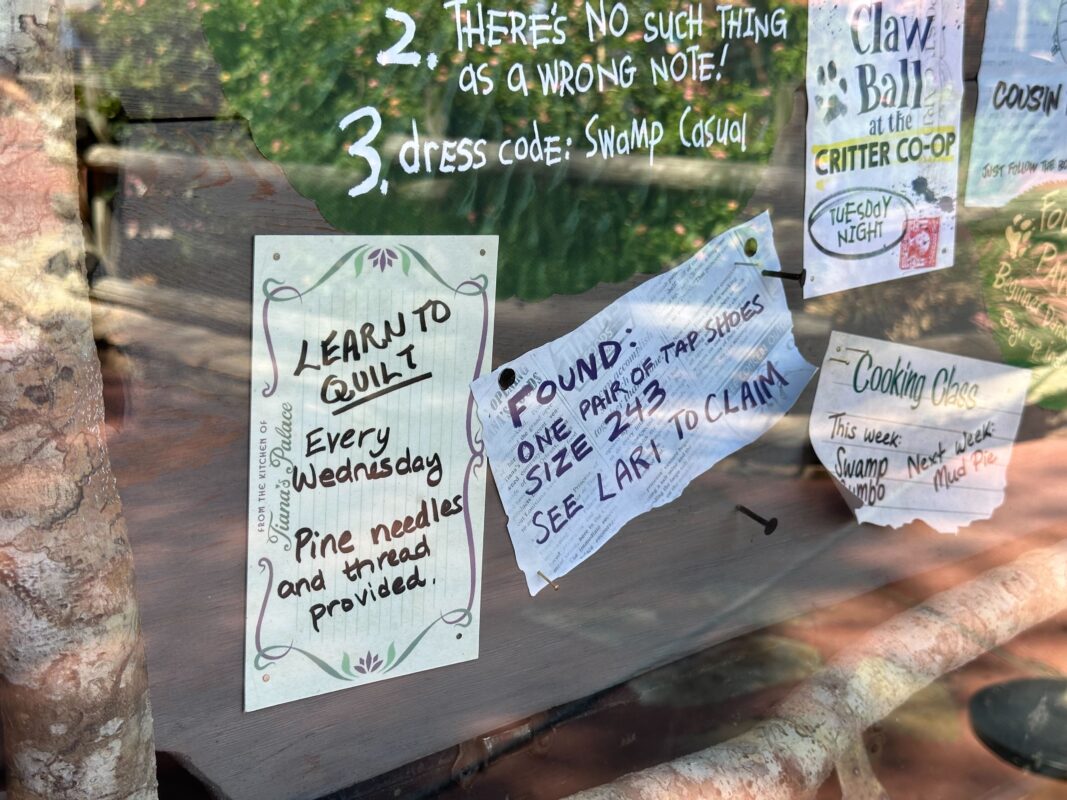 2. THERE'S NO SUCH THING
AS A WRONG NOTE!
3. dress code: Swamp Casual
Claw
Ball
at the
CRITTER CO-OP
TUESDAY
NIGHT
COUSIN
JUST FOLLOW THE
LEARN TO
QUILT
Every
Wednesday
Pine needles
and thread
provided.
FROM THE KITCHEN OF
Tiana's Palace
FOUND:
ONE PAIR OF TAP SHOES
SIZE 243
SEE LARI TO CLAIM
Cooking Class
This week:
Swamp
Gumbo
Next Week:
Mud Pie